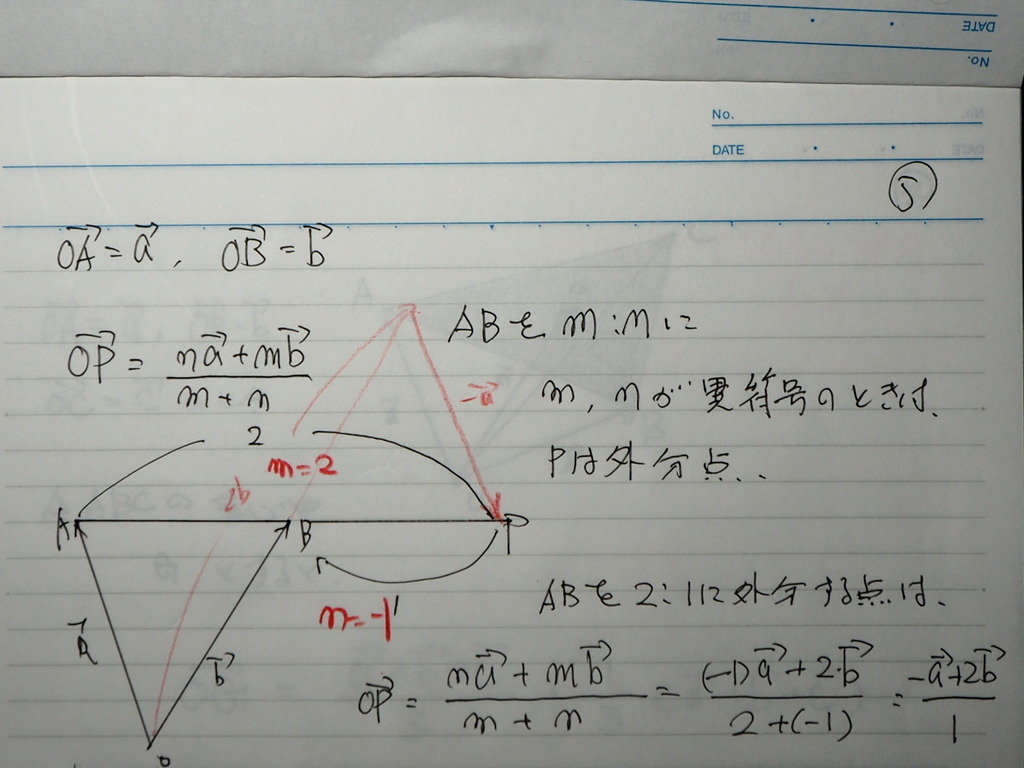 DATE
No.
No.
DATE
⑤
OA→ = a→, OB→ = b→
ABを m:nに
OP→ = (na→ + mb→) / (m + n)
m, nが異符号のときは、
Pは外分点、、
2
m=2
-a→
2b
A
B
P
n=-1
1
a→
b→
ABを2:1に外分する点は、
OP→ = (na→ + mb→) / (m + n) = ((-1)a→ + 2・b→) / (2+(-1)) = (-a→+2b→) / 1